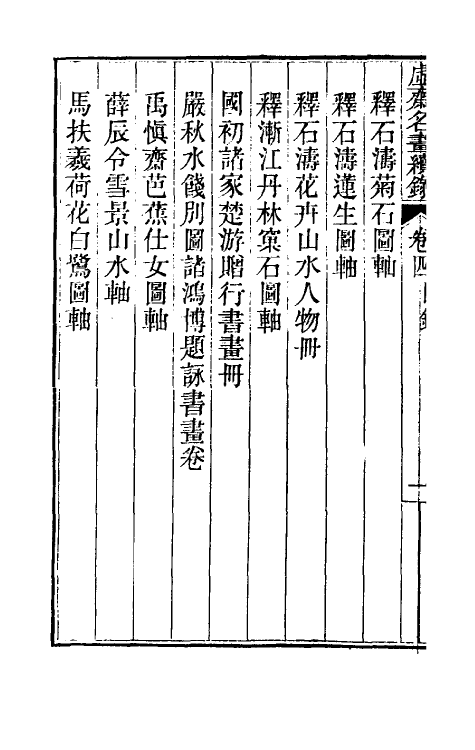 虛齋名畫續錄 卷四目錄 一
釋石濤菊石圖軸
釋石濤蓮生圖軸
釋石濤花卉山水人物冊
釋漸江丹林窠石圖軸
國初諸家楚游贈行書畫冊
嚴秋水餞別圖諸鴻博題詠書畫卷
禹慎齋芭蕉仕女圖軸
薛辰令雪景山水軸
馬扶羲荷花白鷺圖軸